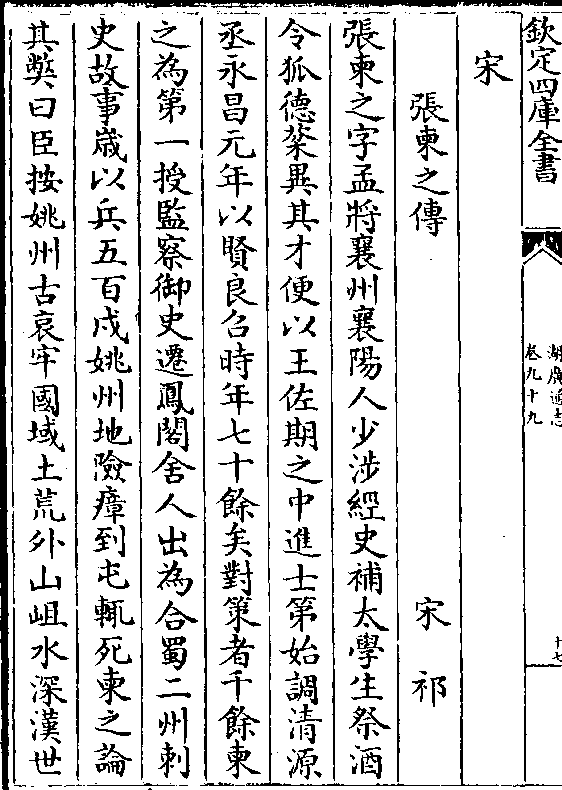 欽定四庫全書
湖廣通志
卷九十九
十七
宋
張柬之傳 宋祁
張柬之字孟將襄州襄陽人少涉經史補太學生祭酒
令狐德棻異其才便以王佐期之中進士第始調清源
丞永昌元年以賢良召時年七十餘矣對策者千餘柬
之為第一授監察御史遷鳳閣舍人出為合蜀二州刺
史故事歲以兵五百戍姚州地險瘴到屯輒死柬之論
其獘曰臣按姚州古哀牢國域土荒外山岨水深漢世